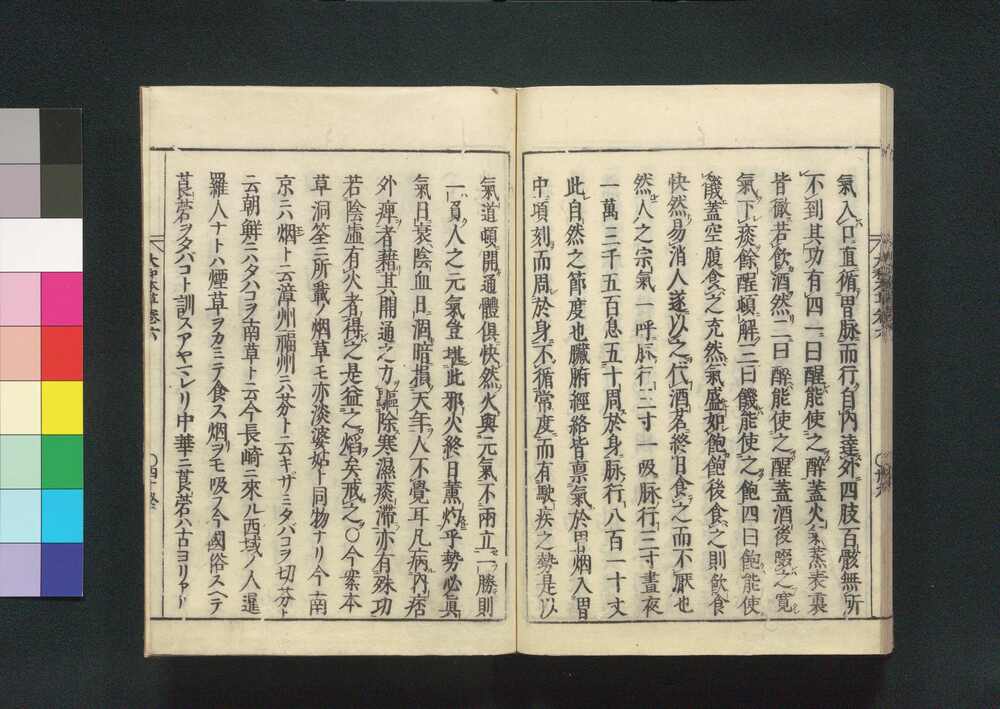 氣入口直循胃脉而行自內達外四肢百骸無所
不到其功有四一曰醒能使之醉蓋火氣蒸表裏
皆徹若飲酒然二曰醉能使之醒蓋酒後啜之寛
氣下痰餘醒頓解三曰饑能使之飽四曰飽能使
饑蓋空腹食之充然氣盛如飽飽後食之則飲食
快然易消人遂以之代酒茗終日食之而不厭也
然人之宗氣一呼脉行三寸一吸脉行三寸晝夜
一萬三千五百息五十周於身脉行八百一十丈
此自然之節度也臟腑經絡皆禀氣於胃烟入胃
中頃刻而周於身不循常度而有駛疾之勢是以
氣道頓開通體俱快然火與元氣不兩立一勝則
一負人之元氣豈堪此邪火終日薫灼乎勢必眞
氣日衰陰血日涸暗損天年人不覺耳凡病內痞
外痺者藉其開通之力驅除寒濕痰滯亦有殊功
若陰虛有火者得之是益之熖矣戒之○今案本
草洞筌ニ所載ノ烟草モ亦淡婆姑ト同物ナリ今南
京ニハ烟ト云漳州福州ニハ芬ト云キザミタバコヲ切芬ト
云朝鮮ニハタハコヲ南草ト云今長崎ニ來ル西域ノ人暹
羅人ナトハ煙草ヲカミテ食ス烟ヲモ吸フ今國俗スヘテ
莨菪ヲタバコト訓スアヤマレリ中華ニ莨菪ハ古ヨリアリ
大和本草卷六